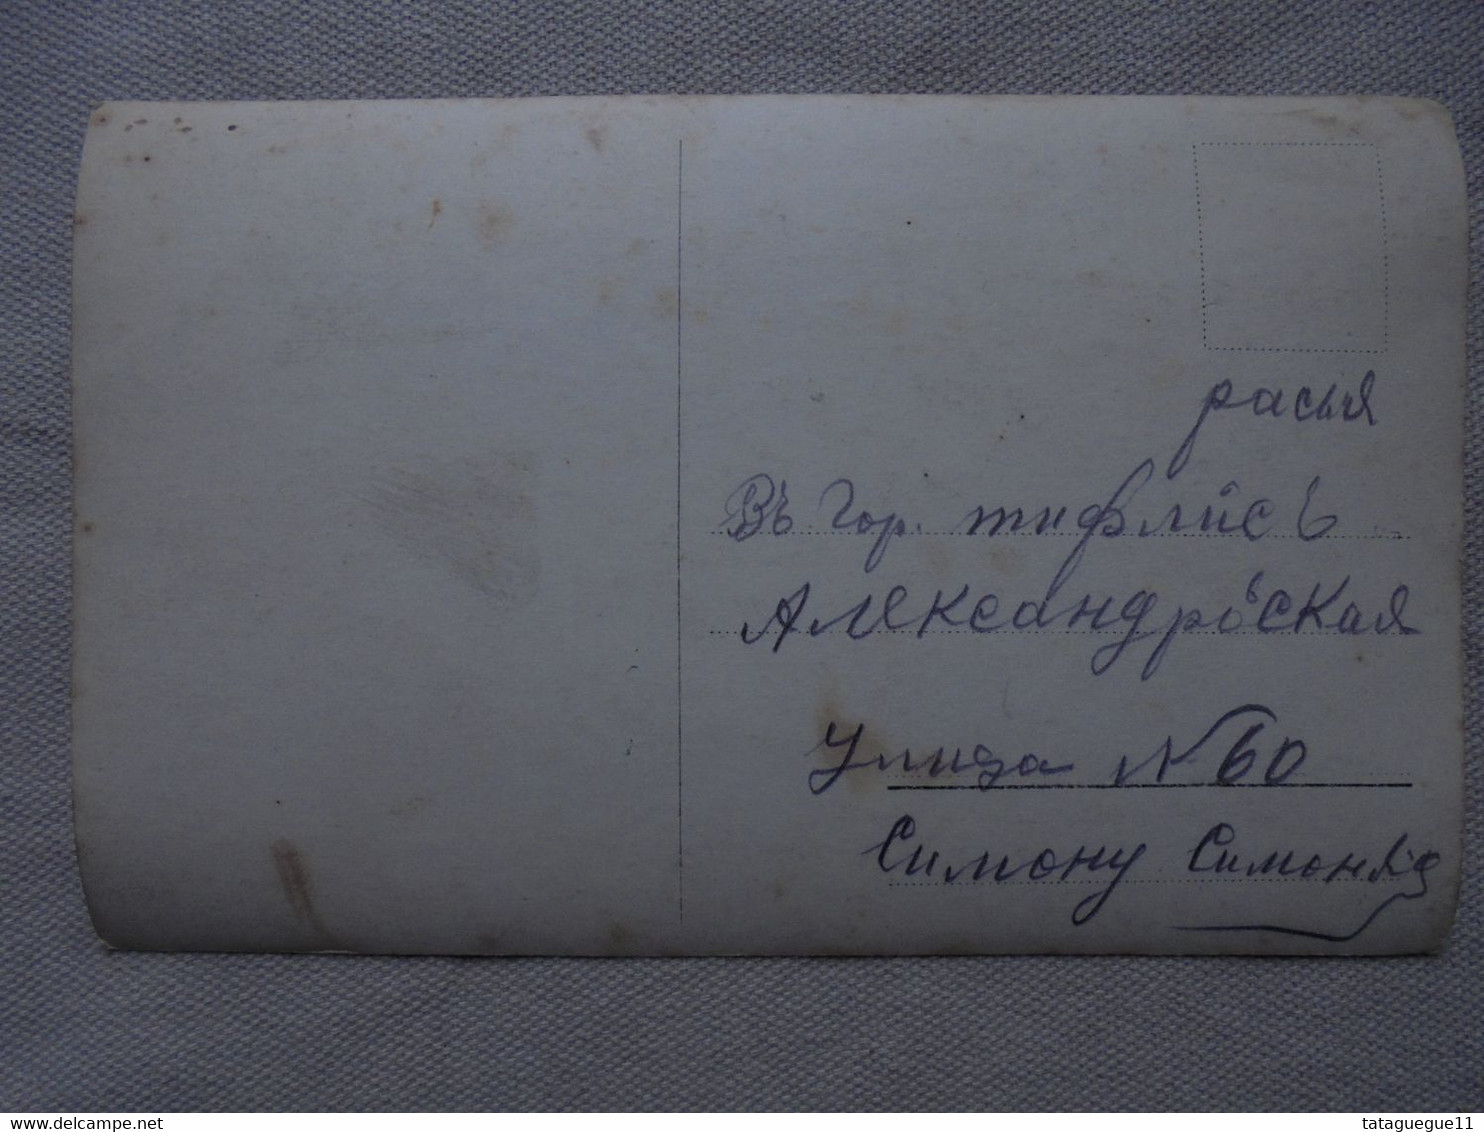 расья
Въ Гор. тифлисъ
Александровская
Улица № 60
Симону Симоняц
delcampe.net
tataguegue11